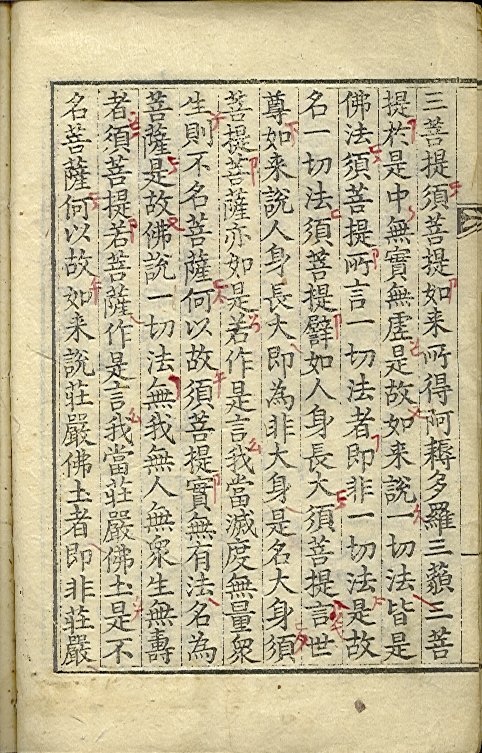 三菩提須菩提如来所得阿耨多羅三藐三菩
提於是中無實無虛是故如来說一切法皆是
佛法須菩提所言一切法者即非一切法是故
名一切法須菩提譬如人身長大須菩提言世
尊如来說人身長大即為非大身是名大身須
菩提菩薩亦如是若作是言我當滅度無量衆
生則不名菩薩何以故須菩提實無有法名為
菩薩是故佛說一切法無我無人無衆生無壽
者須菩提若菩薩作是言我當莊嚴佛土是不
名菩薩何以故如来說莊嚴佛土者即非莊嚴